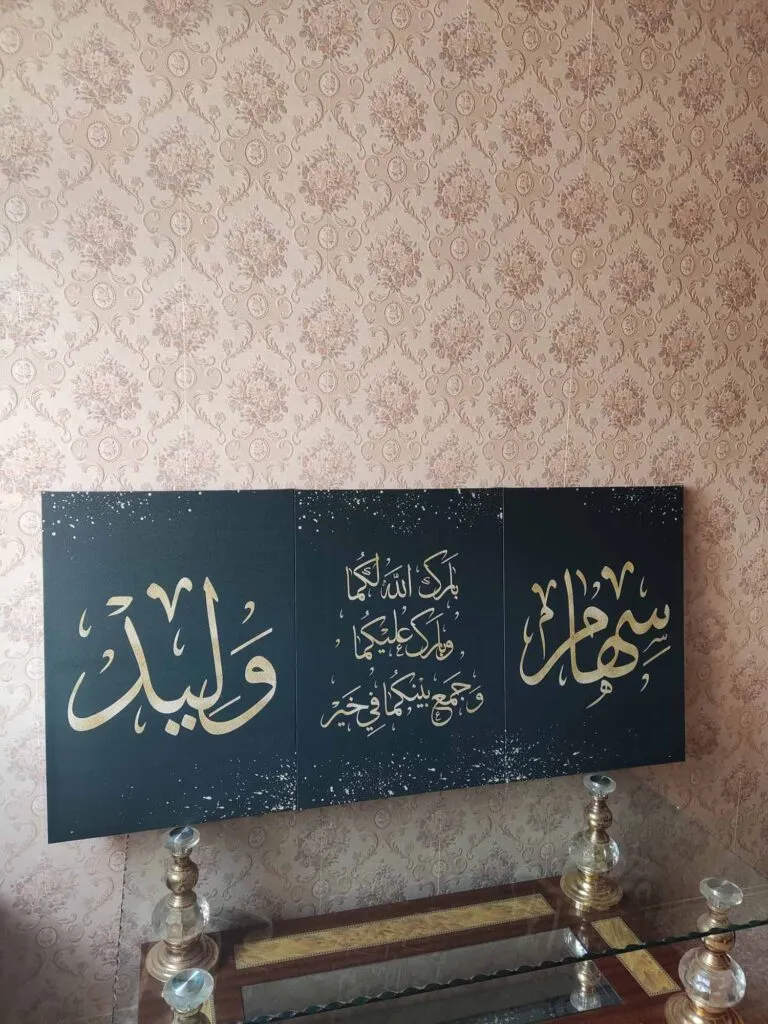 سِهَام
بَارَكَ اللَّهُ لَكُمَا
وَبَارَكَ عَلَيْكُمَا
وَجَمَعَ بَيْنَكُمَا فِي خَيْر
وَلِيد